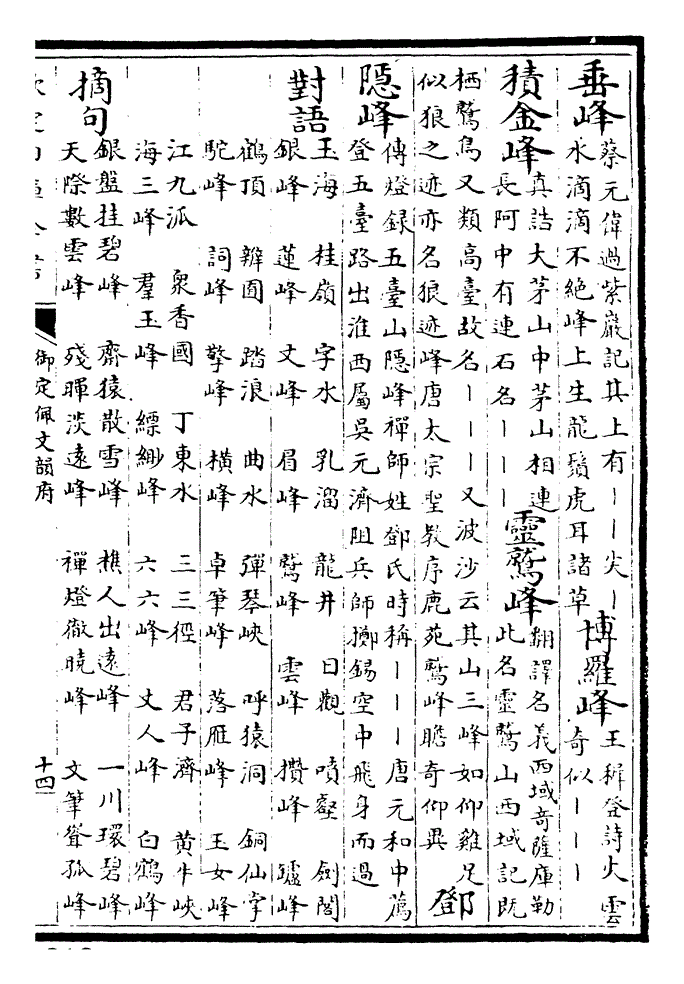 垂峰蔡元偉過紫巖記其上有丨丨尖丨
水滴滴不絕峰上生龍鬚虎耳諸草博羅峰王稱登詩火雲
奇似丨丨丨
積金峰真誥大茅山中茅山相連
長阿中有連石名丨丨丨靈鷲峰翻譯名義西域耆薩庫勒
此名靈鷲山西域記既
栖鷲鳥又類高臺故名丨丨丨又波沙云其山三峰如仰雞足
似狼之迹亦名狼迹峰唐太宗聖教序鹿苑鷲峰瞻奇仰異鄧
隱峰傳燈録五臺山隱峰禪師姓鄧氏時稱丨丨丨唐元和中薦
登五臺路出淮西屬吳元濟阻兵師擲錫空中飛身而過
對語玉海 桂嶺 字水 乳溜 龍井 日觀 噴壑 劍閣
銀峰 蓮峰 文峰 眉峰 鷲峰 雲峰 攢峰 鑪峰
鶴頂 辨圖 踏浪 曲水 彈琴峽 呼猿洞 銅仙掌
駝峰 詞峰 擎峰 橫峰 卓筆峰 落雁峰 玉女峰
江九派 衆香國 丁東水 三三徑 君子濟 黄牛峽
海三峰 羣玉峰 縹緲峰 六六峰 丈人峰 白鶴峰
摘句銀盤挂碧峰 齋猿散雪峰 樵人出遠峰 一川環碧峰
天際數雲峰 殘暉淡遠峰 禪燈徹曉峰 文筆聳孤峰
御定佩文韻府 十四